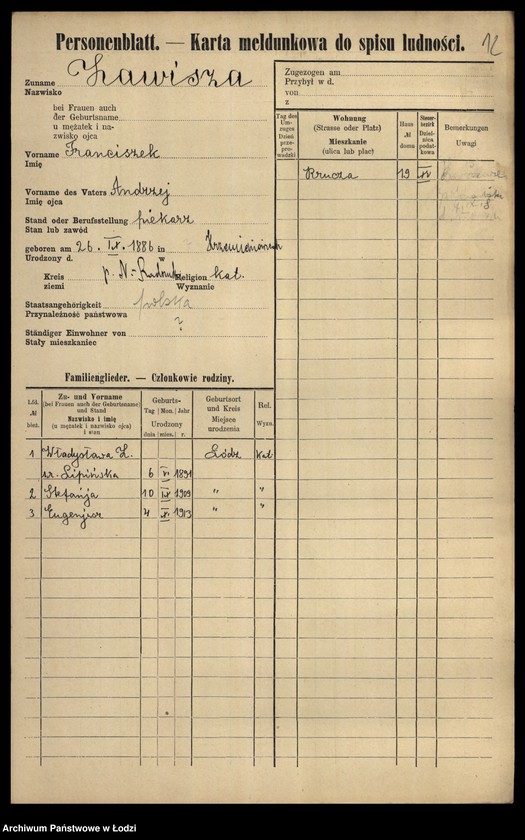 Personenblatt. — Karta meldunkowa do spisu ludności. 12
Zuname Zawisza
Nazwisko
bei Frauen auch
der Geburtsname
u mężatek i na-
zwisko ojca
Vorname Franciszek
Imię
Vorname des Vaters Andrzej
Imię ojca
Stand oder Berufsstellung piekarz
Stan lub zawód
geboren am 26. IV. 1886 in
Urodzony d. w
Kreis p. N.-Radomsk Religion kat.
ziemi Wyznanie
Staatsangehörigkeit polska
Przynależność państwowa
Ständiger Einwohner von ?
Stały mieszkaniec
Zugezogen am
Przybył w d.
von
z
Tag des Um-zuges Dzień prze-prowadzki
Wohnung
(Strasse oder Platz)
Mieszkanie
(ulica lub plac)
Haus № domu
Steuer-bezirk Dziel-nica podat-kowa
Bemerkungen
Uwagi
Krucza 19
Familienglieder. — Członkowie rodziny.
Lfd. № bież.
Zu- und Vorname
(bei Frauen auch der Geburtsname)
und Stand
Nazwisko i imię
(u mężatek i nazwisko ojca)
i stan
Geburts-
Tag Mon. Jahr
Urodzony
dnia mies. r.
Geburtsort
und Kreis
Miejsce
urodzenia
Rel.
Wyzn.
1 Władysława Z. Łódź kat
Lipińska 6 VI 1891
2 Stefanja 10 1909 " "
3 Eugenjusz 4 1913 " "
Archiwum Państwowe w Łodzi